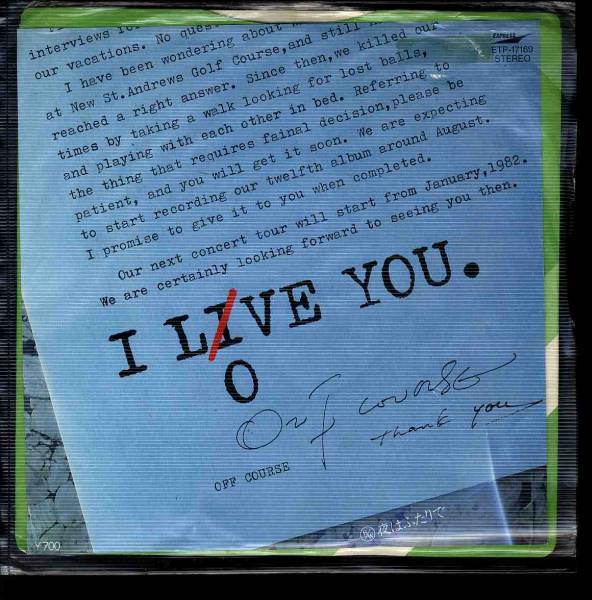 interviews for
our vacations. No quest
I have been wondering about
at New St.Andrews Golf Course,and still
reached a right answer. Since then,we killed our
times by taking a walk looking for lost balls,
and playing with each other in bed. Referring to
the thing that requires fainal decision,please be
patient, and you will get it soon. We are expecting
to start recording our twelfth album around August.
I promise to give it to you when completed.
Our next concert tour will start from January,1982.
We are certainly looking forward to seeing you then.
I LIVE YOU.
O
Off course
thank you
OFF COURSE
EXPRESS
ETP-17169
STEREO
¥700
夜はふたりで